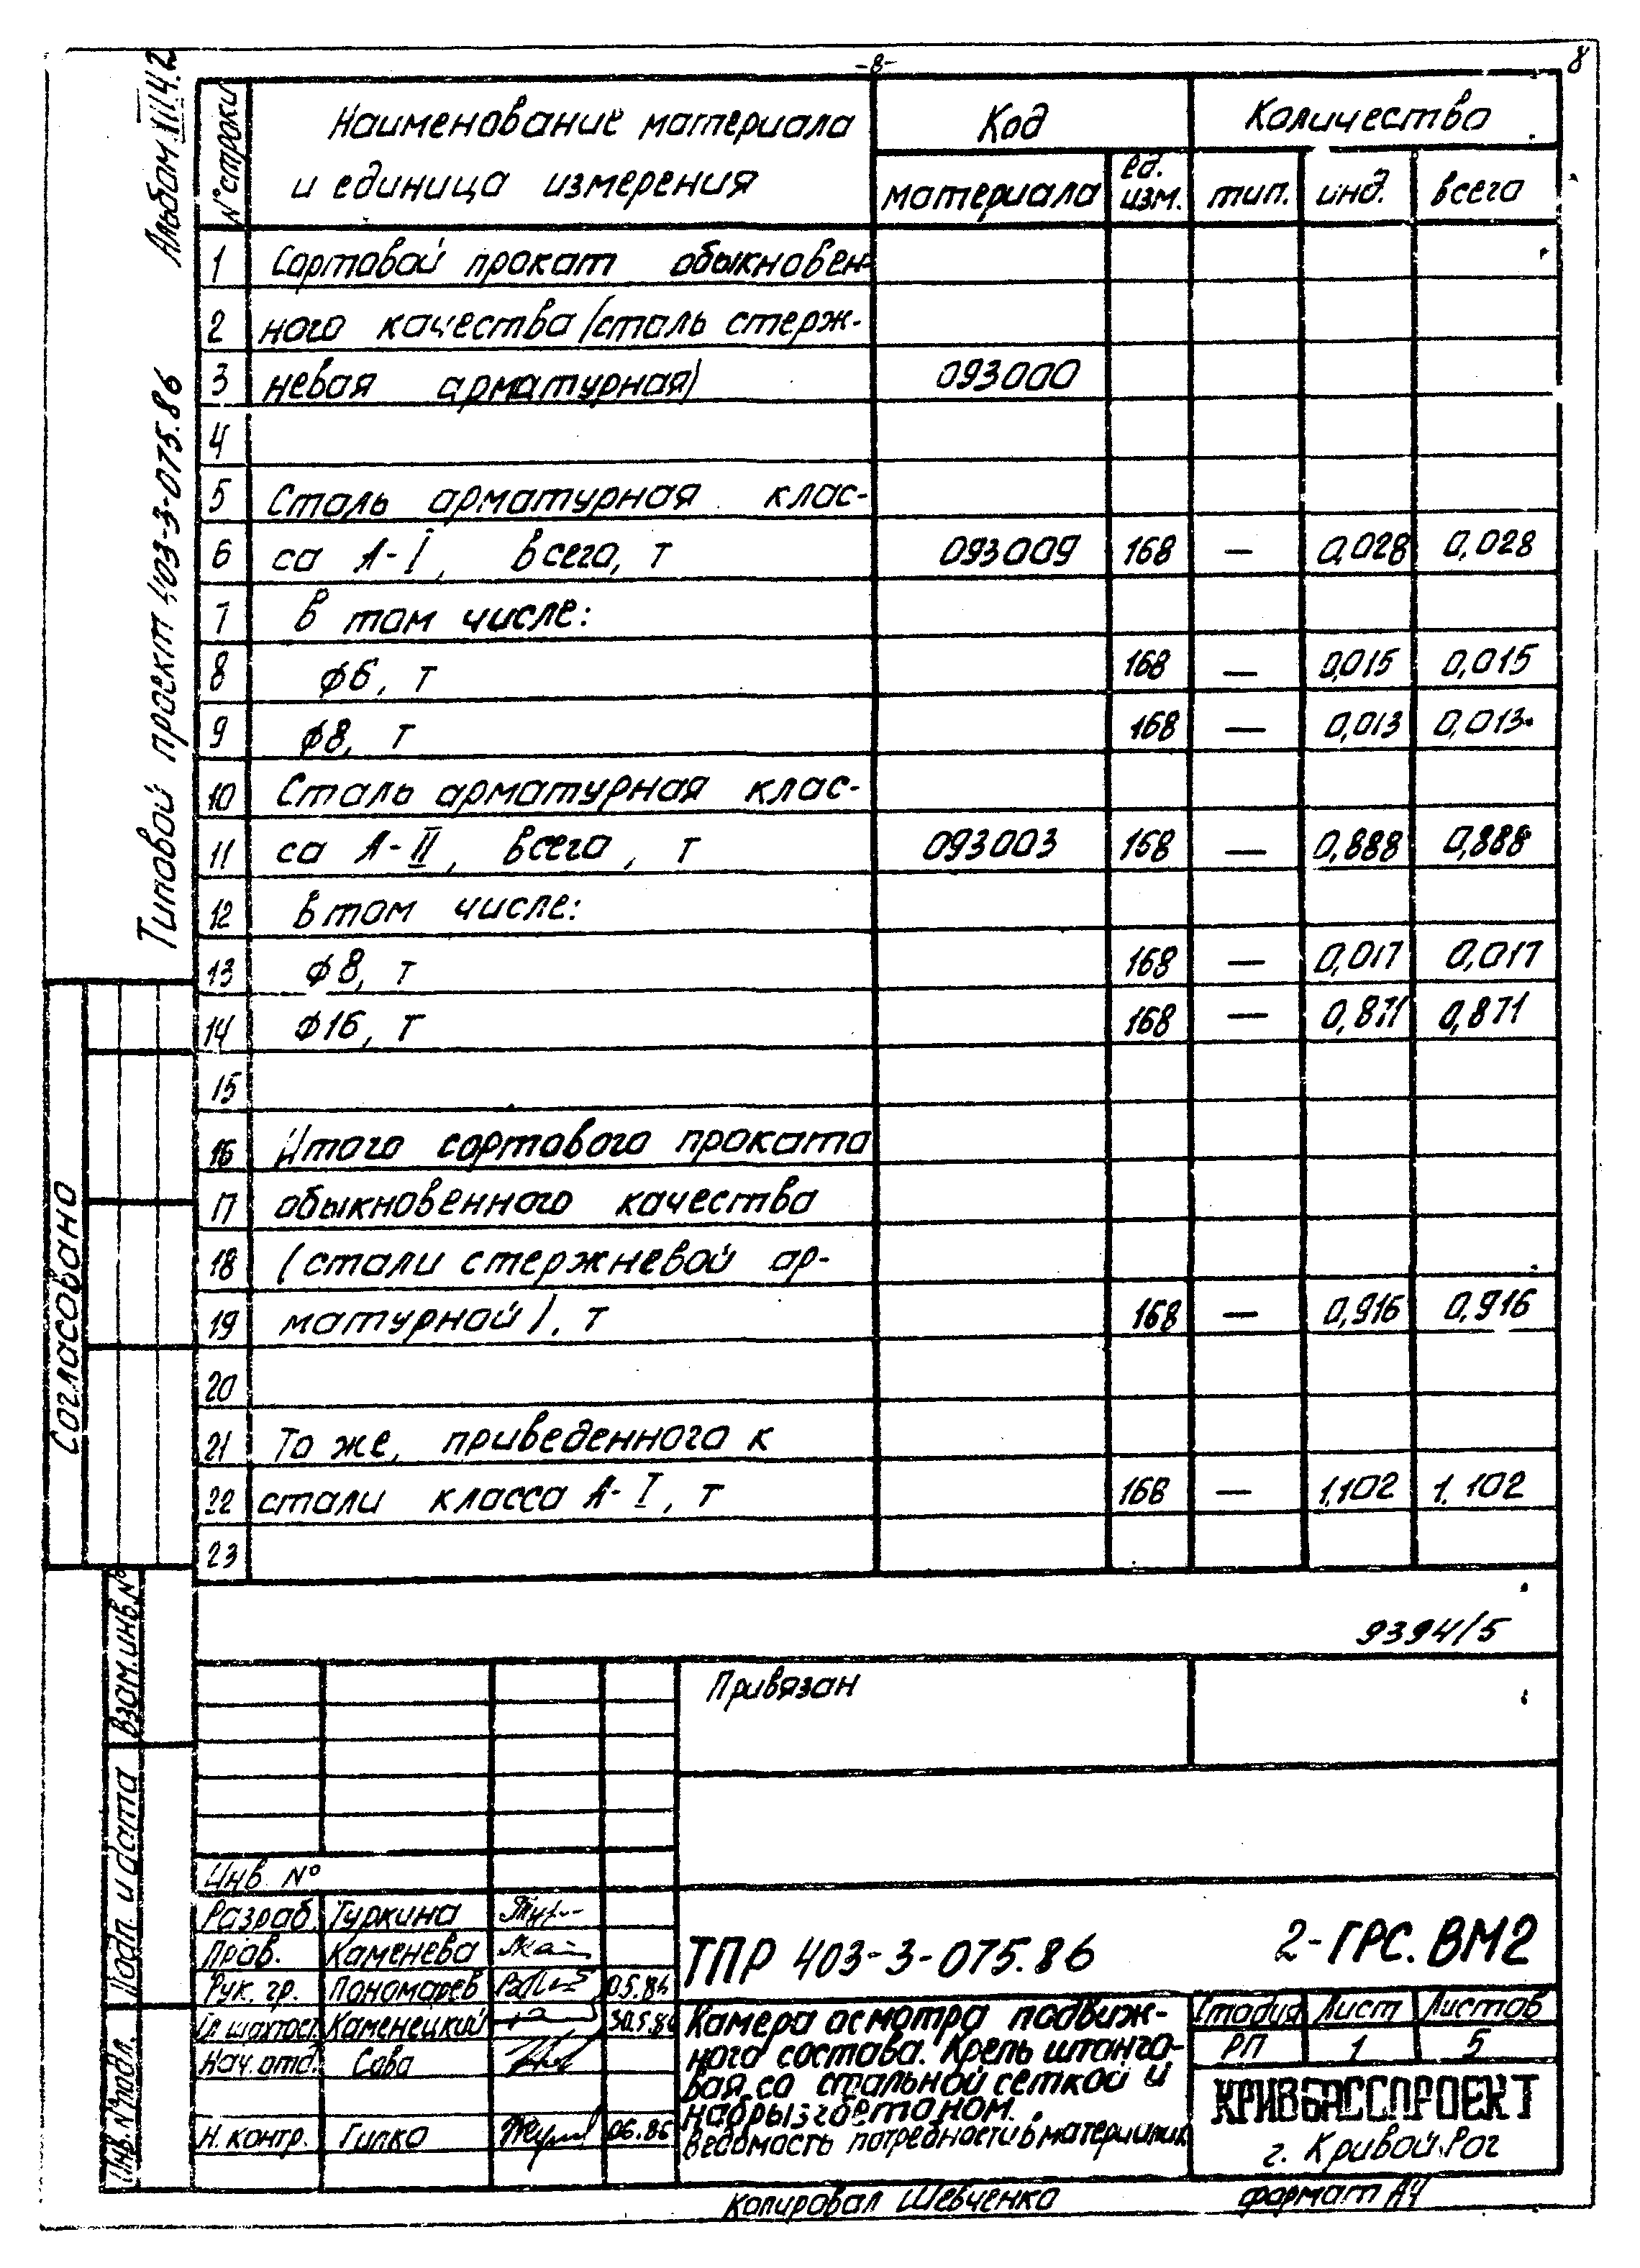 -8-
8
Типовой проект 403-3-075.86
№ строки
Наименование материала
и единица измерения
Код
Количество
материала
ед.
изм.
тип.
инд.
всего
1 Сортовой прокат обыкновен-
2 ного качества (сталь стерж-
3 невая арматурная) 093000
4
5 Сталь арматурная клас-
6 са А-I, всего, т 093009 168 — 0,028 0,028
7 в том числе:
8 ф6, т 168 — 0,015 0,015
9 ф8, т 168 — 0,013 0,013
10 Сталь арматурная клас-
11 са А-II, всего, т 093003 168 — 0,888 0,888
12 в том числе:
13 ф8, т 168 — 0,017 0,017
14 ф16, т 168 — 0,871 0,871
15
16 Итого сортового проката
17 обыкновенного качества
18 (стали стержневой ар-
19 матурной), т 168 — 0,916 0,916
20
21 То же, приведенного к
22 стали класса А-I, т 168 — 1,102 1,102
23
Согласовано
Взам.инв.№
Подп. и дата
Инв.№ подл.
9394/5
Привязан
Инв. №
Разраб. Туркина
Пров. Каменева
Рук. гр. Пономарев
Каменецкий
Нач. отд. Сова
Н. контр. Гипко
ТПР 403-3-075.86
2-ГРС.ВМ2
Камера осмотра подвиж-
ного состава. Крепь штанго-
вая со стальной сеткой и
набрызгбетоном.
Ведомость потребности в материалах
Стадия Лист Листов
РП 1 5
КРИВБАССПРОЕКТ
г. Кривой Рог
Копировал Шевченко
формат А4